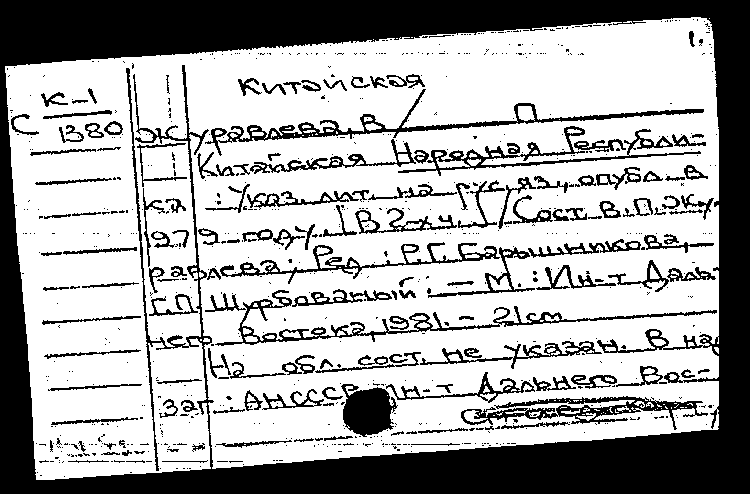 1.
Китайская
К-1
С 1380
Журавлева, В П
Китайская Народная Республи-
ка : Указ. лит. на рус. яз., опубл. в
1979 году. [В 2-х ч.] / Сост. В.П. Жу-
равлева; Ред.: Р.Г. Барышникова,
Г.П. Щурбованый. — М. : Ин-т Даль-
него Востока, 1981. - 21см
На обл. сост. не указан. В на
заг.: АНСССР. Ин-т Дальнего Вос-